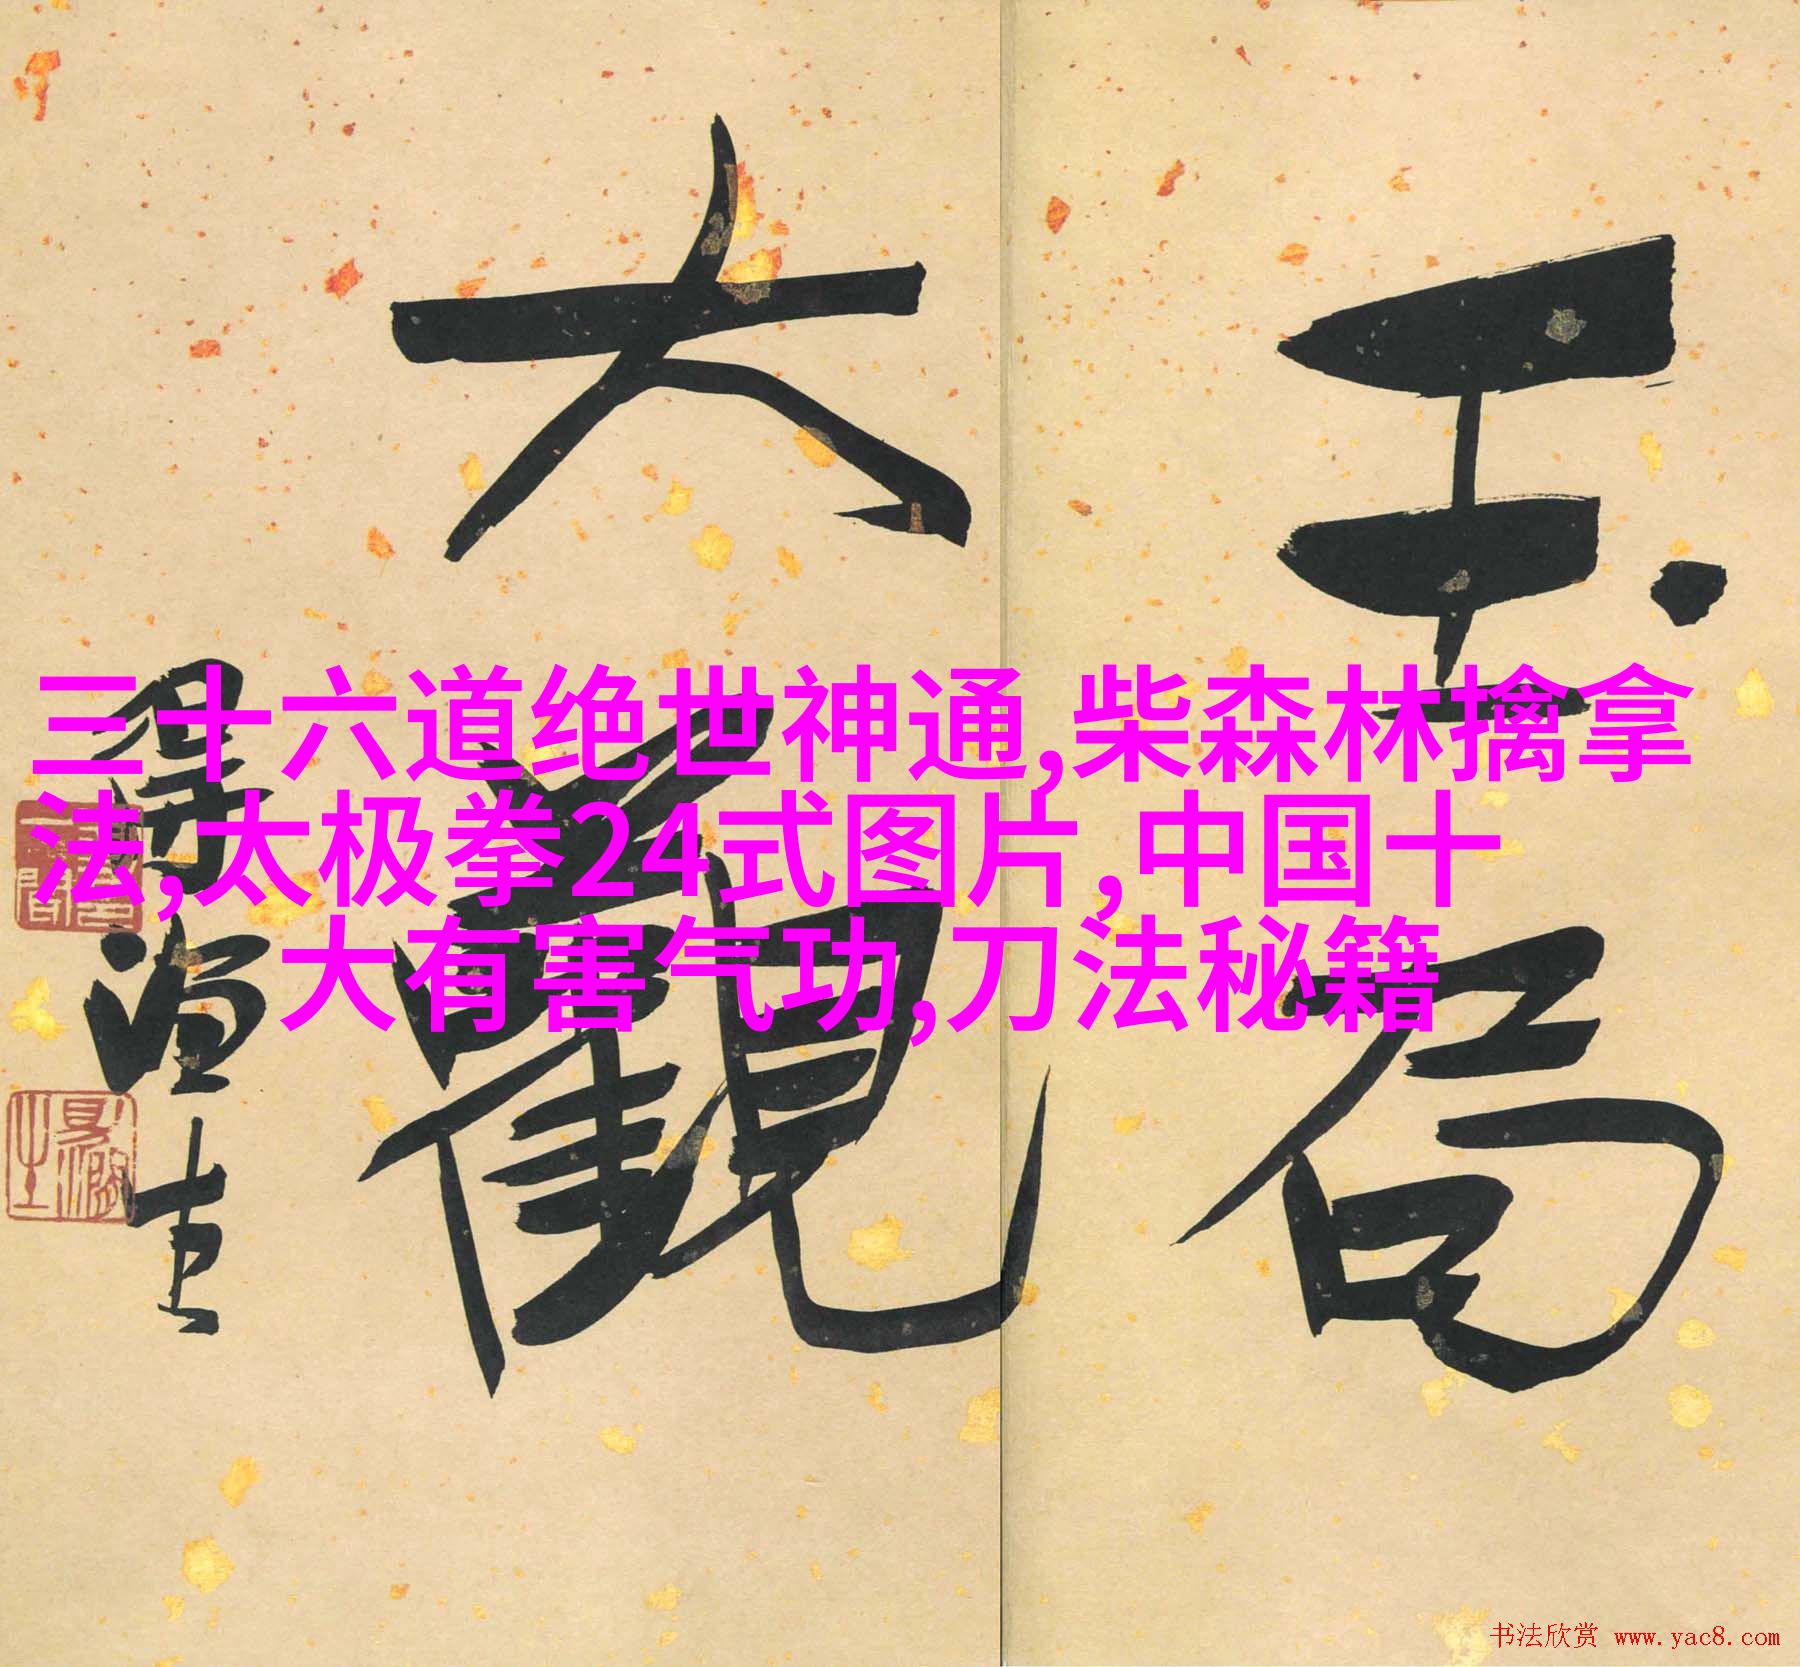 三十六道绝世神通,柴森林擒拿
法,太极拳24式图片,中国十
大有害气功,刀法秘籍
玉局
大觀
书法欣赏 www.yac8.com